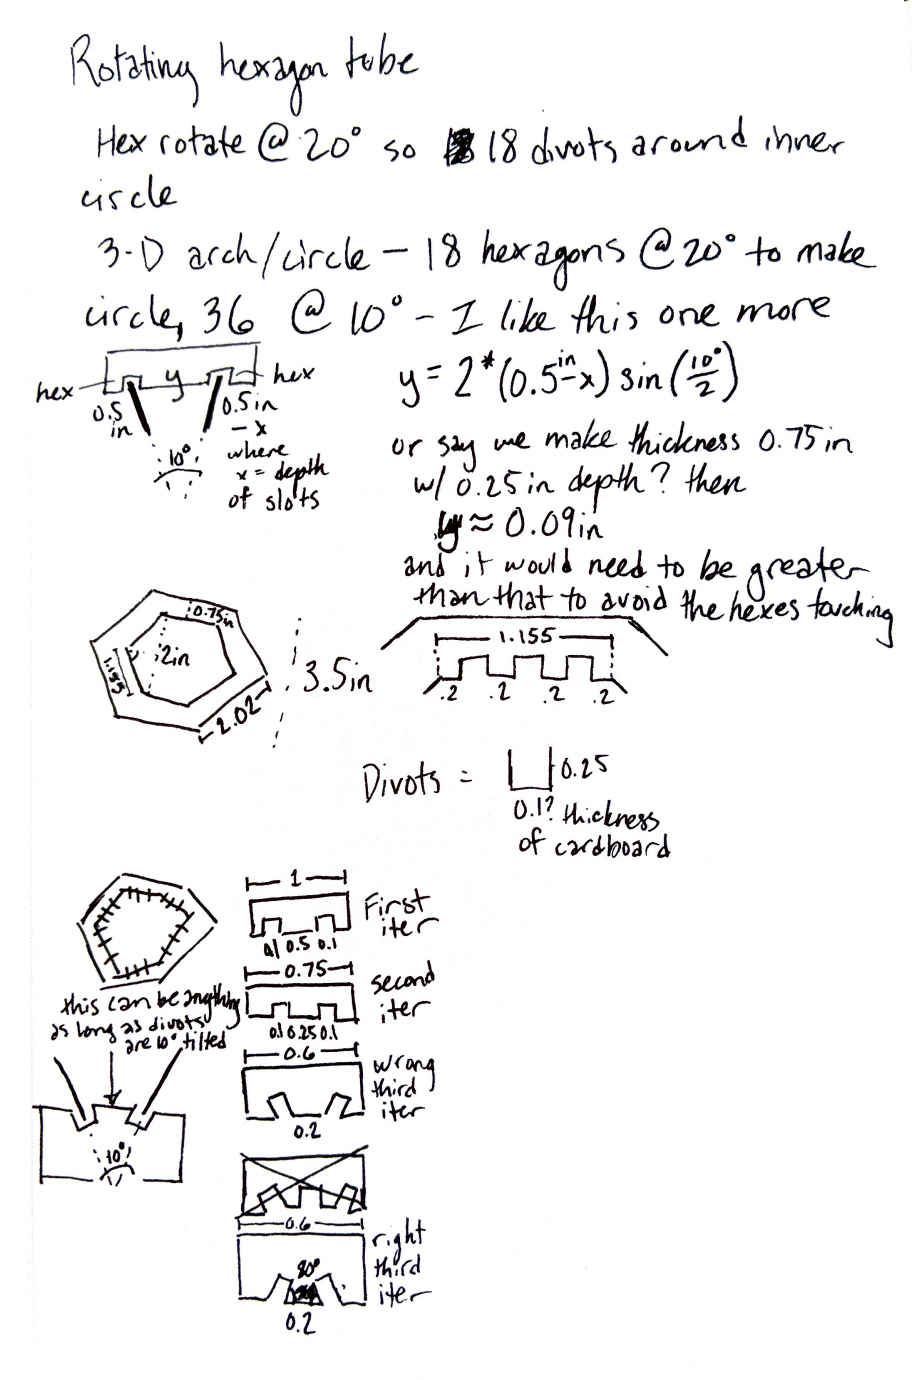 Rotating hexagon tube
Hex rotate @ 20° so 18 divots around inner
circle
3-D arch/circle - 18 hexagons @ 20° to make
circle, 36 @ 10° - I like this one more
hex
y
hex
0.5
in
0.5in
- x
where
x = depth
of slots
10°
y = 2*(0.5in-x) sin(10°/2)
or say we make thickness 0.75in
w/ 0.25in depth? then
y ≈ 0.09in
and it would need to be greater
than that to avoid the hexes touching
0.75in
2in
1.155
2.02
3.5in
1.155
.2 .2 .2 .2
Divots =
0.25
0.1? thickness
of cardboard
1
First
iter
0.1 0.5 0.1
0.75
second
iter
0.1 0.25 0.1
this can be anything
as long as divots
are 10° tilted
10°
0.6
wrong
third
iter
0.2
0.6
right
third
iter
80°
0.2